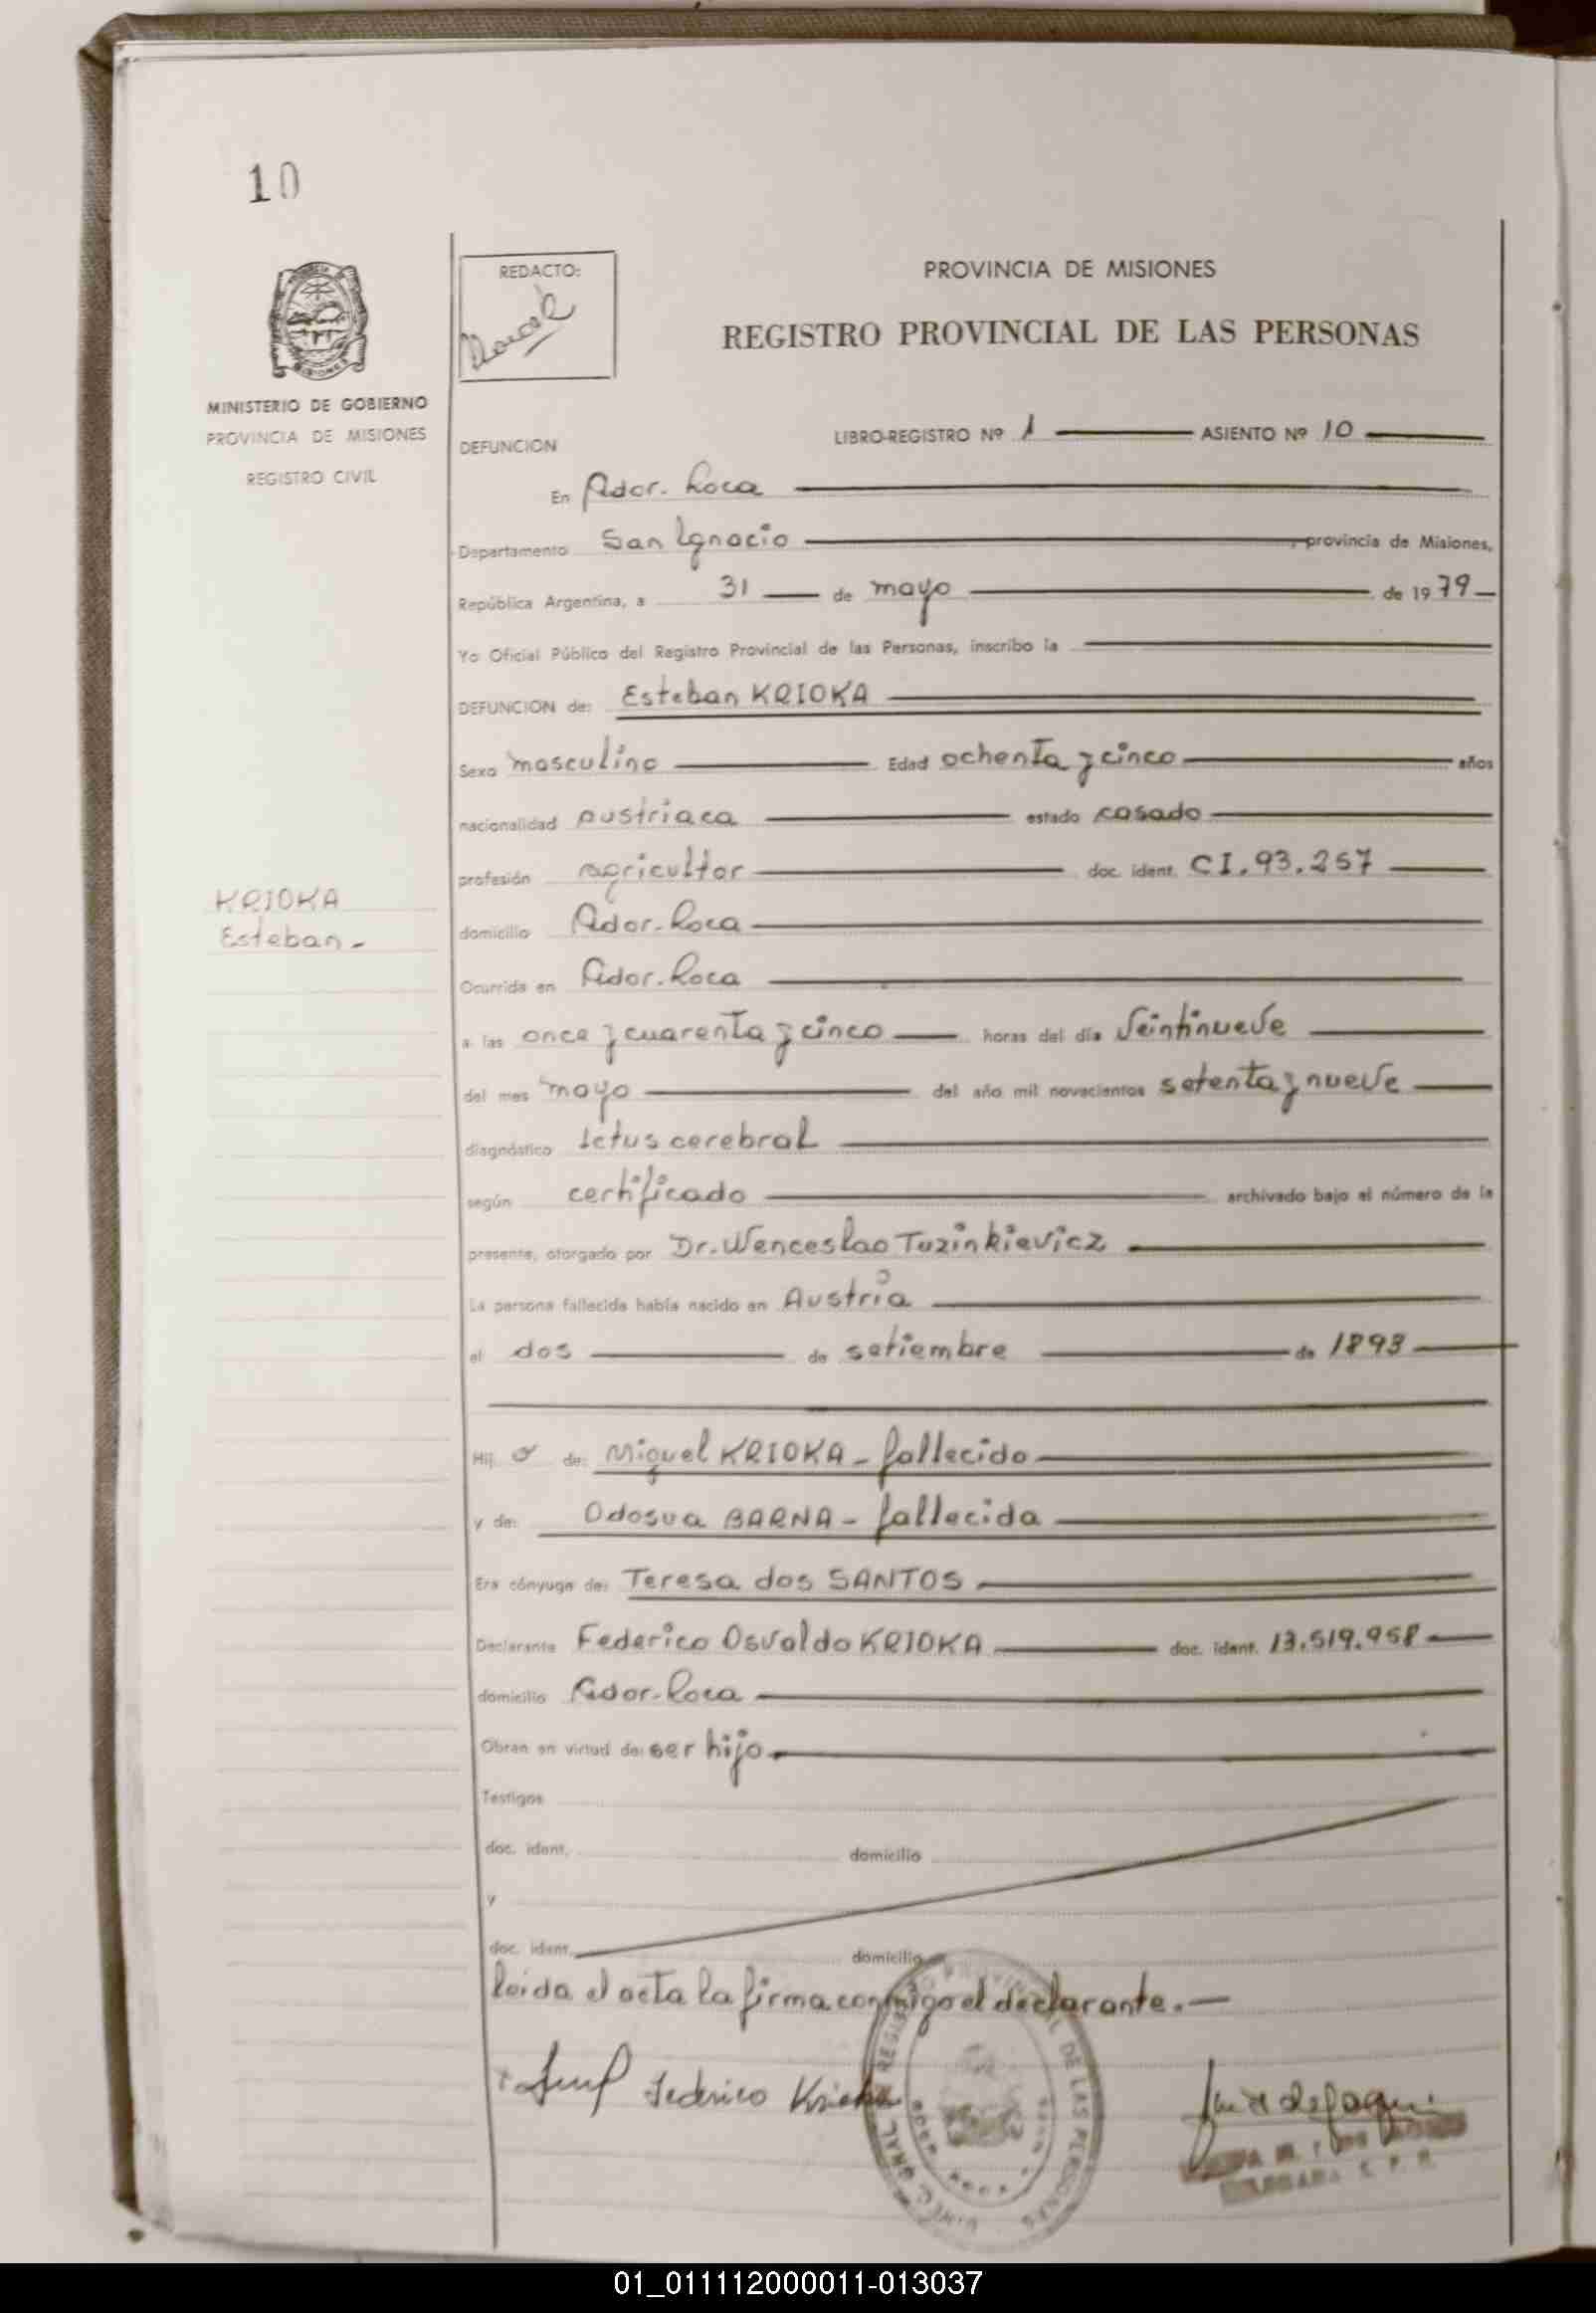 10
REDACTO:
PROVINCIA DE MISIONES
REGISTRO PROVINCIAL DE LAS PERSONAS
MINISTERIO DE GOBIERNO
PROVINCIA DE MISIONES
REGISTRO CIVIL
DEFUNCION LIBRO-REGISTRO Nº 1 ASIENTO Nº 10
En Gdor. Roca
Departamento San Ignacio, provincia de Misiones,
República Argentina, a 31 de mayo de 1979
Yo Oficial Público del Registro Provincial de las Personas, inscribo la
DEFUNCION de: Esteban KRIOKA
Sexo masculino Edad ochenta y cinco años
nacionalidad austriaca estado casado
profesión agricultor doc. ident. CI. 93.257
KRIOKA
Esteban -
domicilio Gdor. Roca
Ocurrida en Gdor. Roca
a las once y cuarenta y cinco horas del día veintinueve
del mes mayo del año mil novecientos setenta y nueve
diagnóstico Ictus cerebral
según certificado archivado bajo el número de la
presente, otorgado por Dr. Wenceslao Tuzinkievicz
La persona fallecida había nacido en Austria
el dos de setiembre de 1893
Hij o de: Miguel KRIOKA - fallecido
y de: Odosua BARNA - fallecida
Era cónyuge de: Teresa dos SANTOS
Declarante Federico Osvaldo KRIOKA doc. ident. 13.519.958
domicilio Gdor. Roca
Obran en virtud de: ser hijo.
Testigos
doc. ident. domicilio
y
doc. ident. domicilio
leida el acta la firma conmigo el declarante.-
Federico Krioka
REGISTRO PROVINCIAL DE LAS PERSONAS
01_011112000011-013037